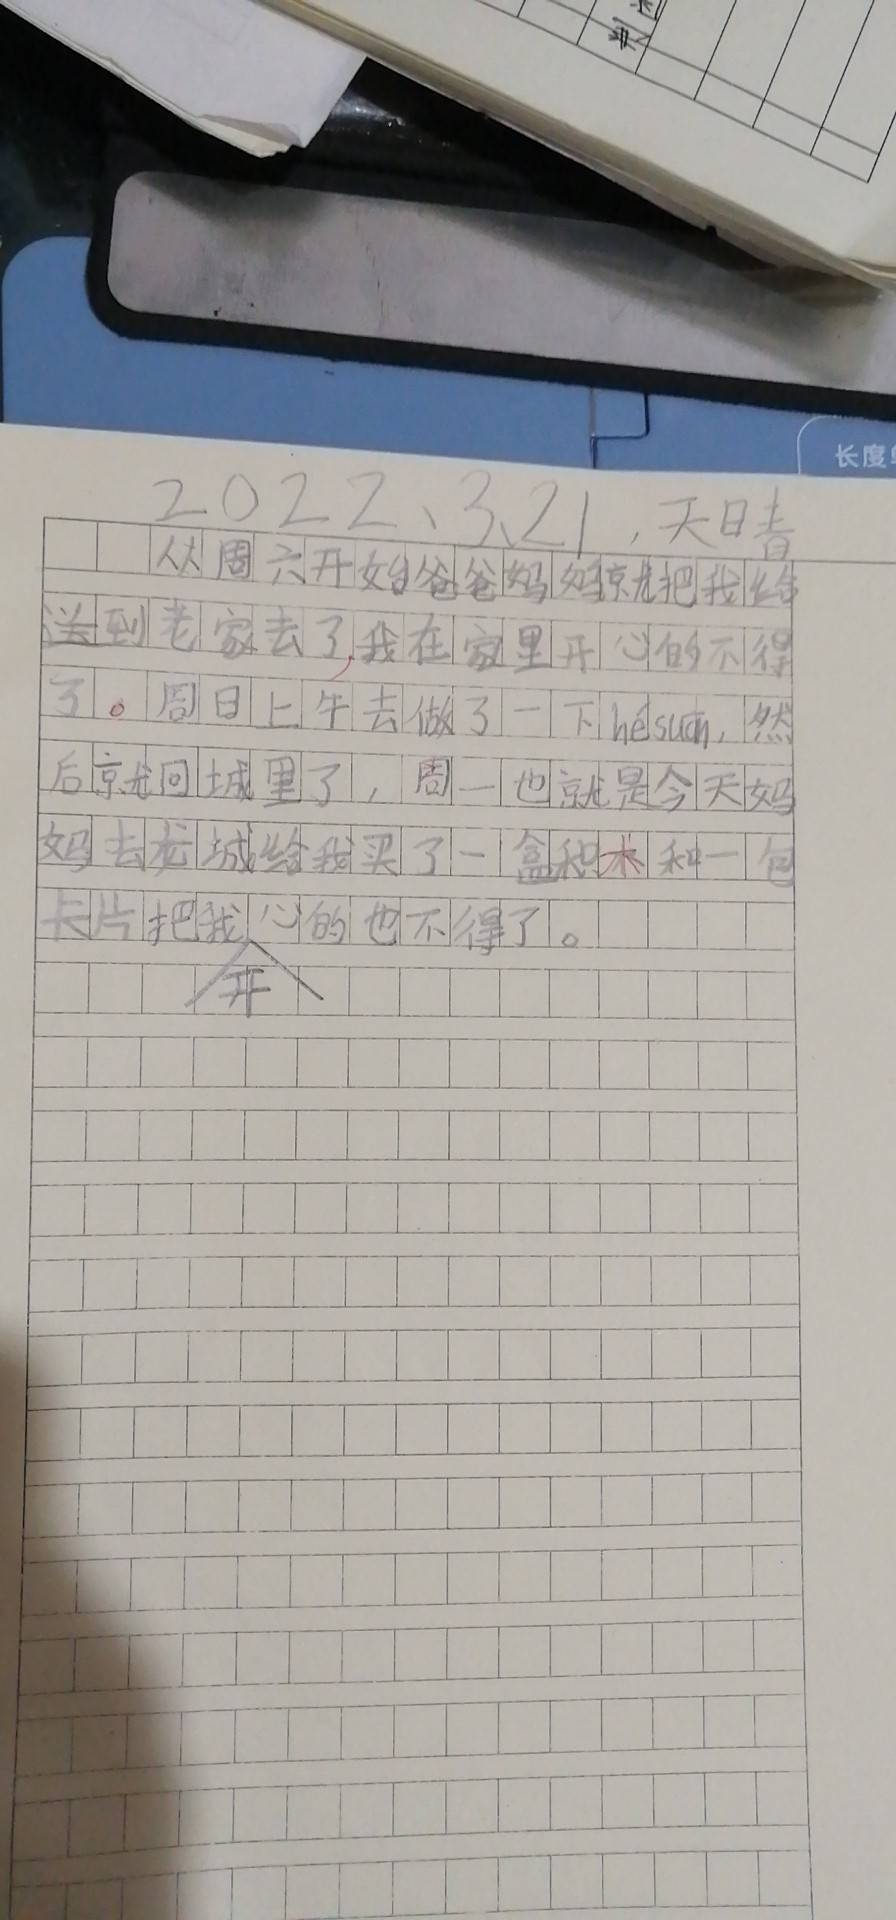 长度单
2022、3、21，天晴
从周六开始爸爸妈妈就把我给
送到老家去了,我在家里开心的不得
了。周日上午去做了一下hésuān,然
后就回城里了，周一也就是今天妈
妈去龙城给我买了一盒积木和一包
卡片把我心的也不得了。
开